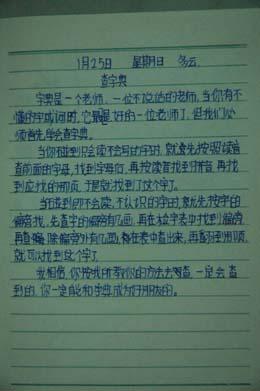 1月25日 星期日 多云
查字典
字典是一个老师,一位不说话的老师。当你有不
懂的字或词时,它是最好的一位老师了。但我们必
须首先学会查字典。
当你碰到只会读不会写的字时,就首先按照读音
查前面的字母,找到字母后,再按读音找到拼音,再找
到应找的那页,于是就找到了这个字。
当碰到即不会读、不认识的字时,就先按字的
偏旁找,先查字的偏旁有几画,再在检字表中找到偏旁
再查,除偏旁外有几画,都在表中查出来,再翻到那页,
就可以找到这个字了。
我相信,你按我所教你的方法去查,一定会查
到的,你一定能和字典成为好朋友的。